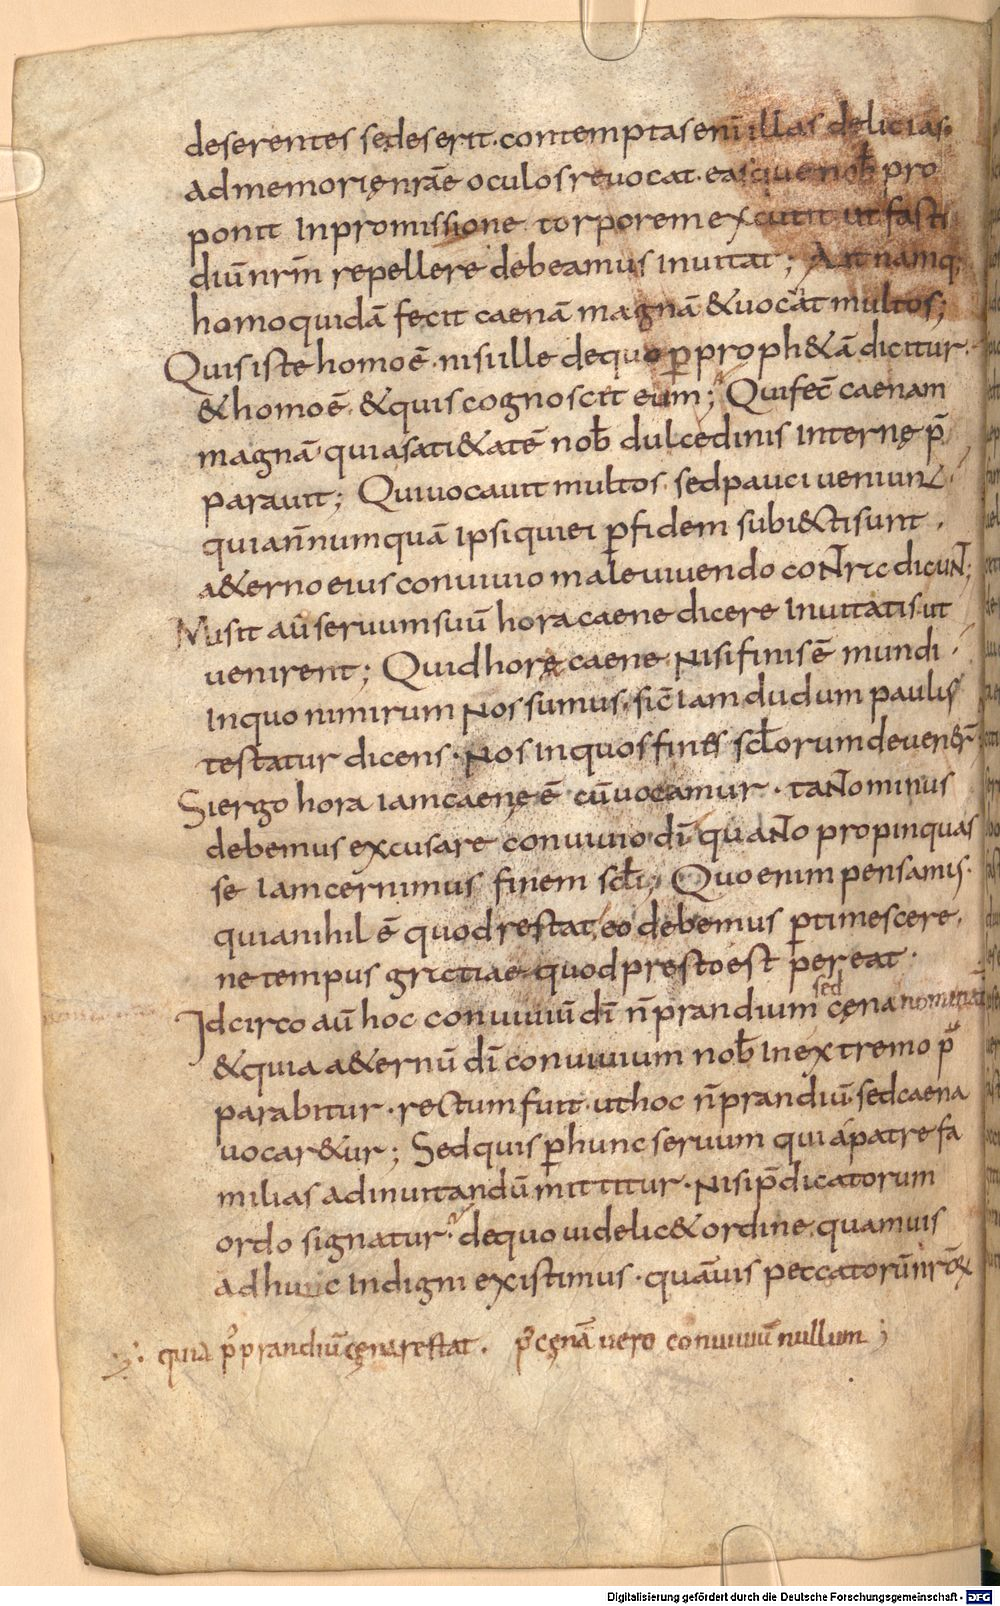 deserentes sedeserit · contemptas enī illas delicias ·
ad memorię nrāe oculos revocat · easque nob̄ pro
ponit In promissione torporem excutit ut fasti
diū nrm̄ repellere debeamus Inuitat ; Ait namq;
homo quidā fecit caenā magnā & uocat multos ;
Quis iste homo ē · nisi ille de quo ꝑ proph&ā dicitur ·
& homo ē · & quis cognoscit eum ; Qui fec̄ caenam
magnā · quia sati&atē nob̄ dulcedinis Internę p̄
parauit ; Qui uocauit multos · sed pauci ueniunt ·
quia n̄numquā Ipsi qui ei ꝑ fidem subiecti sunt ·
a&erno eius conuiuio male uiuendo contric dicunt ;
Misit aū seruum suū hora caene dicere Inuitatis · ut
uenirent ; Quid hore caene nisi finis ē mundi ·
In quo nimirum nos sumus · sic̄ Iam dudum paulus
testatur dicens · Nos In quos fines scl̄orum deuener̄
Si ergo hora iam caenę ē cū uocamur · tanto minus
debemus excusare conuiuio dī quanto propinquas
se Iam cernimus finem scl̄i ; Quo enim pensamus ·
quia nihil ē quod restat eo debemus ꝑtimescere ·
ne tempus grictiae quod presto est pereat ·
Idcirco aū hoc conuiuiū dī n̄ prandium sed cęna nominat̄
& quia a&ernū dī conuiuium nob̄ In extremo p̄
parabitur · rectum fuit · ut hoc n̄ prandiū · sed caena
uocar&ur ; Sed quis ꝑ hunc seruum qui a patre fa
milias ad inuitandū mittitur · nisi p̄dicatorum
ordo signatur · de quo uidelic& ordine quamuis
adhuc Indigni existimus · quāuis peccatorū nrōꝝ
quia p̄ prandiū cęna restat · p̄ cęnā uero conuiuiū nullum ;
Digitalisierung gefördert durch die Deutsche Forschungsgemeinschaft - DFG